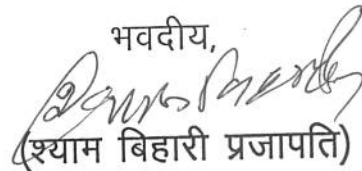 भवदीय,
(श्याम बिहारी प्रजापति)